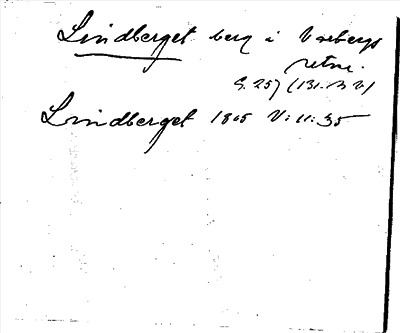 Lindberget berg i Varbergs
retne.
G. 257 (131. B 2)
Lindberget 1805 V: 11: 35